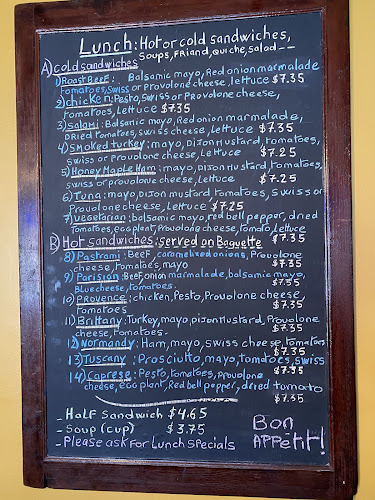 Lunch: Hot or cold sandwiches,
Soups, Friand, Quiche, Salad--
A) Cold sandwiches
1) Roast Beef: Balsamic mayo, Red onion marmalade
tomatoes, Swiss or Provolone cheese, lettuce $7.35
2) chicken: Pesto, Swiss or Provolone cheese,
tomatoes, Lettuce $7.35
3) Salami: Balsamic mayo, Red onion marmalade,
Dried tomatoes, swiss cheese, Lettuce $7.35
4) Smoked turkey: mayo, Dijon Mustard, tomatoes,
Swiss or provolone cheese, Lettuce $7.25
5) Honey Maple Ham: mayo, Dijon mustard, tomatoes,
swiss or provolone cheese, Lettuce $7.25
6) Tuna: mayo, Dijon mustard tomatoes, swiss or
Provolone cheese, Lettuce $7.25
7) Vegetarian: balsamic mayo, red bell pepper, dried
Tomatoes, eggplant, Provolone cheese, tomato, Lettuce
$7.35
B) Hot sandwiches: served on Baguette
8) Pastrami: Beef, caramelized onions, Provolone
cheese, tomatoes, mayo $7.35
9) Parisian: Beef, onion marmalade, balsamic mayo,
Blue cheese, tomatoes. $7.35
10) Provence: chicken, Pesto, Provolone cheese,
Tomatoes $7.35
11) Brittany: Turkey, mayo, Dijon mustard, Provolone
cheese, Tomatoes. $7.35
12) Normandy: Ham, mayo, swiss cheese, tomatoes
$7.35
13) Tuscany: Prosciutto, mayo, tomatoes, swiss
$7.35
14) Caprese: Pesto, tomatoes, provolone
cheese, egg plant, Red bell pepper, dried tomato
$7.35
- Half Sandwich $4.65
- Soup (cup) $3.75
- Please ask For Lunch specials
Bon
Appétit!